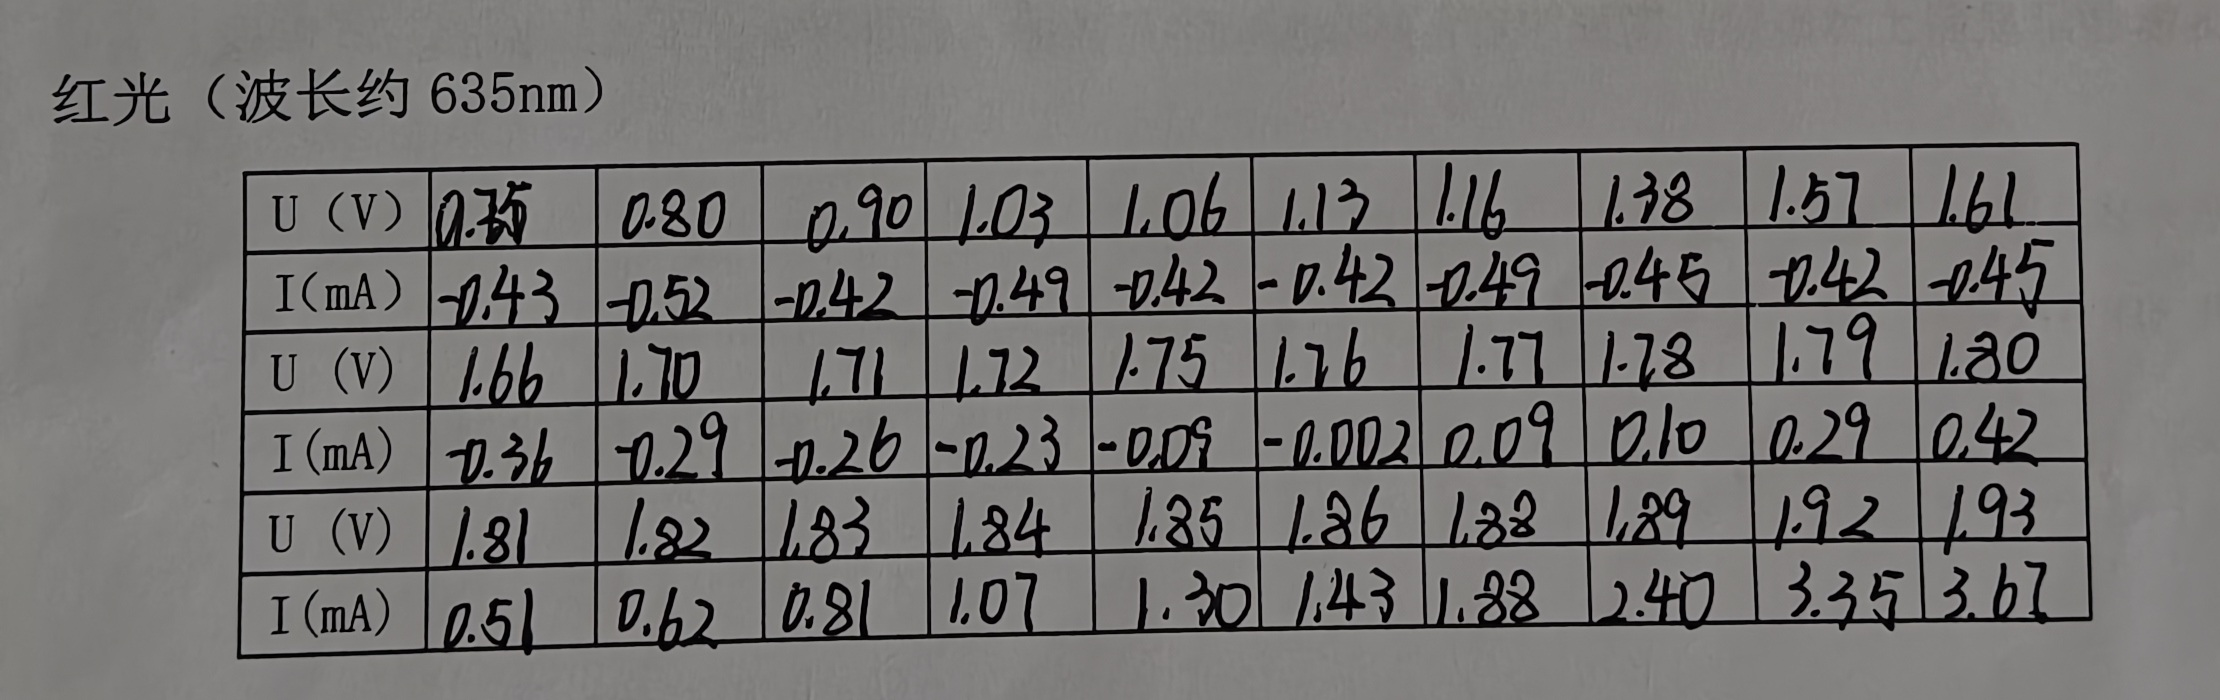 红光（波长约 635nm）
U (V) 0.75 0.80 0.90 1.03 1.06 1.13 1.16 1.38 1.57 1.61
I(mA) -0.43 -0.52 -0.42 -0.49 -0.42 -0.42 -0.49 -0.45 -0.42 -0.45
U (V) 1.66 1.70 1.71 1.72 1.75 1.76 1.77 1.78 1.79 1.80
I(mA) -0.36 -0.29 -0.26 -0.23 -0.09 -0.002 0.09 0.10 0.29 0.42
U (V) 1.81 1.82 1.83 1.84 1.85 1.86 1.88 1.89 1.92 1.93
I(mA) 0.51 0.62 0.81 1.07 1.30 1.43 1.88 2.40 3.35 3.67